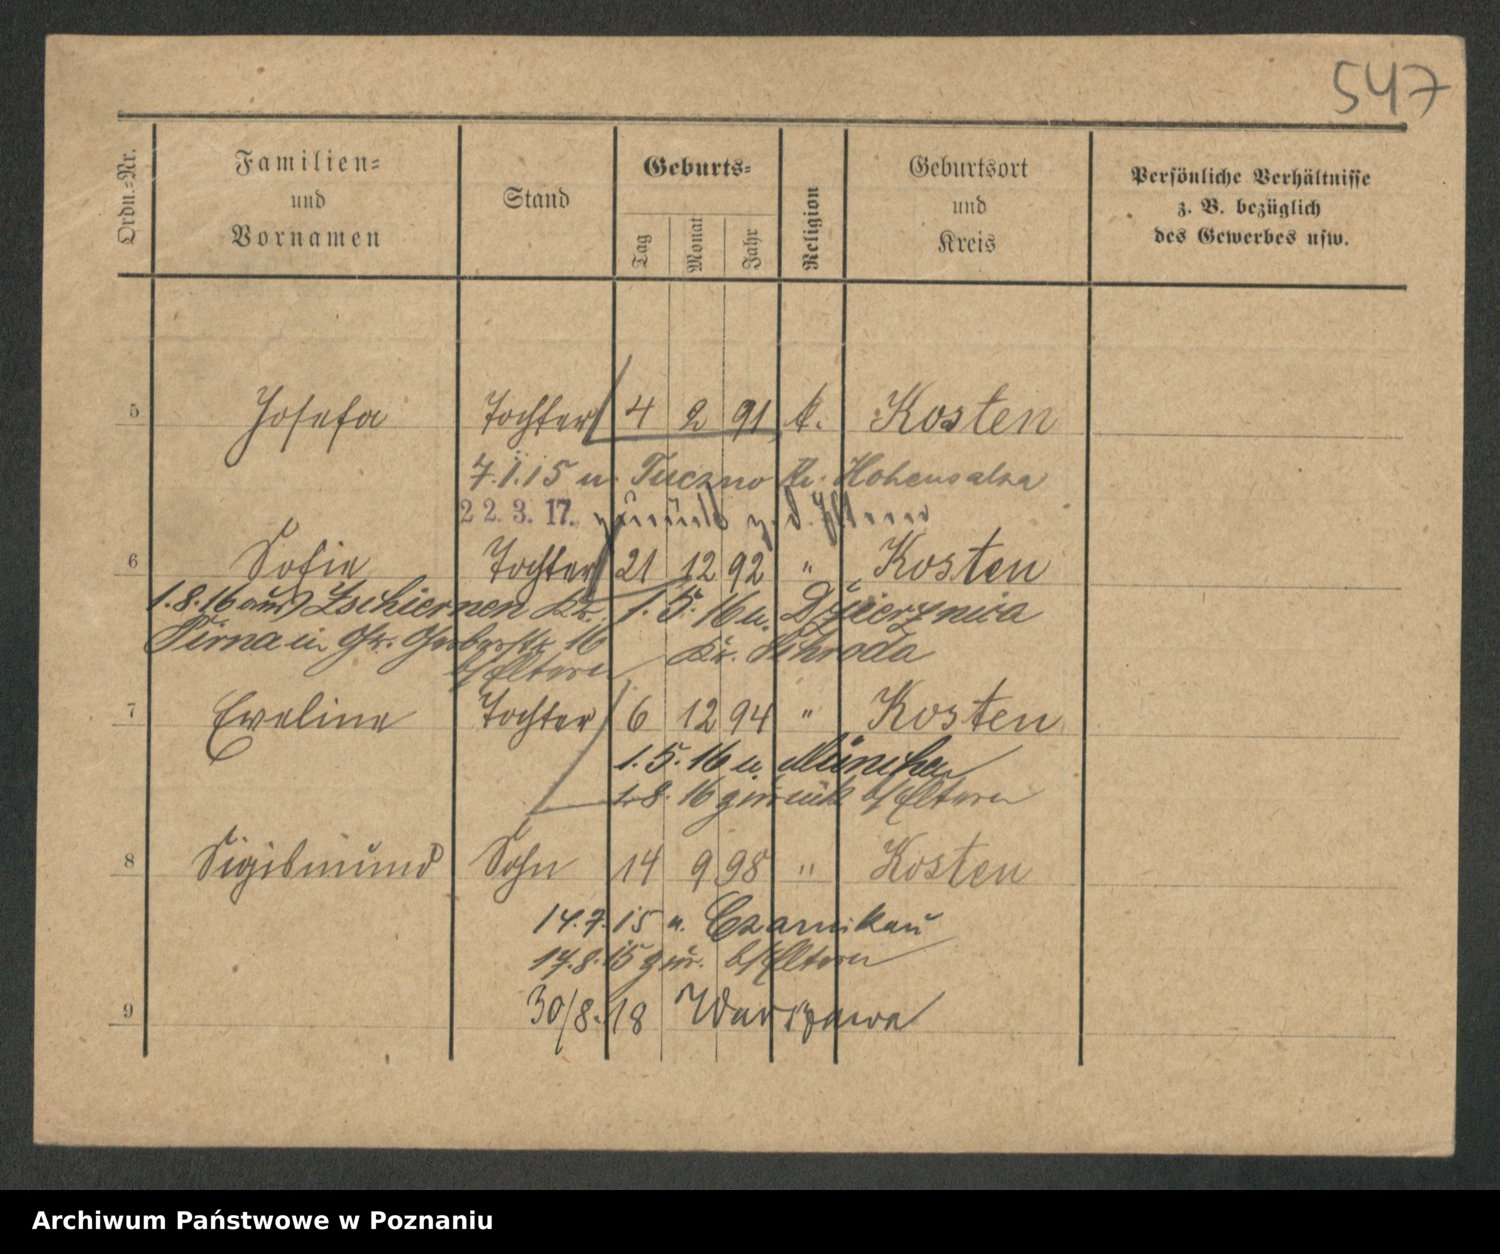 547
Ordn.=Nr.
Familien=
und
Vornamen
Stand
Geburts=
Tag
Monat
Jahr
Religion
Geburtsort
und
Kreis
Persönliche Verhältnisse
z. B. bezüglich
des Gewerbes usw.
5 Josefa Tochter 4 2 91 k. Kosten
7.1.15 n. Tuczno Kr. Hohensalza
22.3.17. zurück z. d. Eltern
6 Sofie Tochter 21 12 92 " Kosten
1.8.16 aus Zschiernen Kr. 1.5.16 n. Dzierznica
Pirna in 16 Kr. Schroda
b/Eltern
7 Eveline Tochter 6 12 94 " Kosten
1.5.16 n. München
1.8.16 zurück b/Eltern
8 Sigismund Sohn 14 9 98 " Kosten
14.7.15 n. Czarnikau
17.8.15 zur. b/Eltern
9 30/8.18 Warszawa
Archiwum Państwowe w Poznaniu